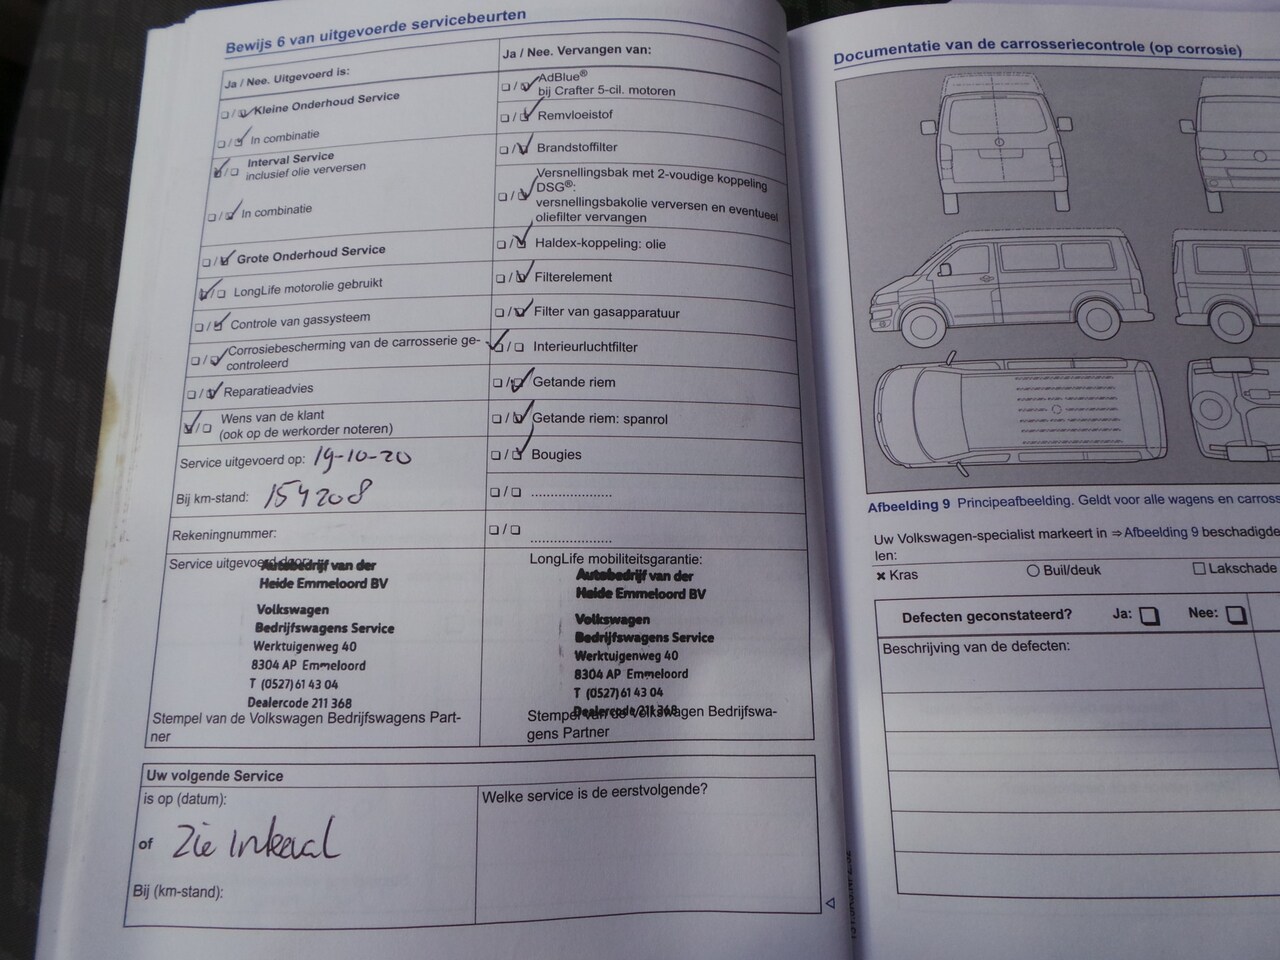 Bewijs 6 van uitgevoerde servicebeurten
Ja / Nee. Uitgevoerd is:
Kleine Onderhoud Service
In combinatie
Interval Service
inclusief olie verversen
In combinatie
Grote Onderhoud Service
LongLife motorolie gebruikt
Controle van gassysteem
Corrosiebescherming van de carrosserie ge-
controleerd
Reparatieadvies
Wens van de klant
(ook op de werkorder noteren)
Service uitgevoerd op: 19-10-20
Bij km-stand: 154208
Rekeningnummer:
Service uitgevoerd door:
Autobedrijf van der
Heide Emmeloord BV
Volkswagen
Bedrijfswagens Service
Werktuigenweg 40
8304 AP Emmeloord
T (0527) 61 43 04
Dealercode 211 368
Stempel van de Volkswagen Bedrijfswagens Part-
ner
Ja / Nee. Vervangen van:
AdBlue®
bij Crafter 5-cil. motoren
Remvloeistof
Brandstoffilter
Versnellingsbak met 2-voudige koppeling
DSG®:
versnellingsbakolie verversen en eventueel
oliefilter vervangen
Haldex-koppeling: olie
Filterelement
Filter van gasapparatuur
Interieurluchtfilter
Getande riem
Getande riem: spanrol
Bougies
LongLife mobiliteitsgarantie:
Autobedrijf van der
Heide Emmeloord BV
Volkswagen
Bedrijfswagens Service
Werktuigenweg 40
8304 AP Emmeloord
T (0527) 61 43 04
Dealercode 211 368
Stempel van de Volkswagen Bedrijfswa-
gens Partner
Uw volgende Service
is op (datum):
of Zie Inkaal
Bij (km-stand):
Welke service is de eerstvolgende?
Documentatie van de carrosseriecontrole (op corrosie)
Afbeelding 9 Principeafbeelding. Geldt voor alle wagens en carross
Uw Volkswagen-specialist markeert in ⇒ Afbeelding 9 beschadigde
len:
× Kras
○ Buil/deuk
□ Lakschade
Defecten geconstateerd? Ja: □ Nee: □
Beschrijving van de defecten: